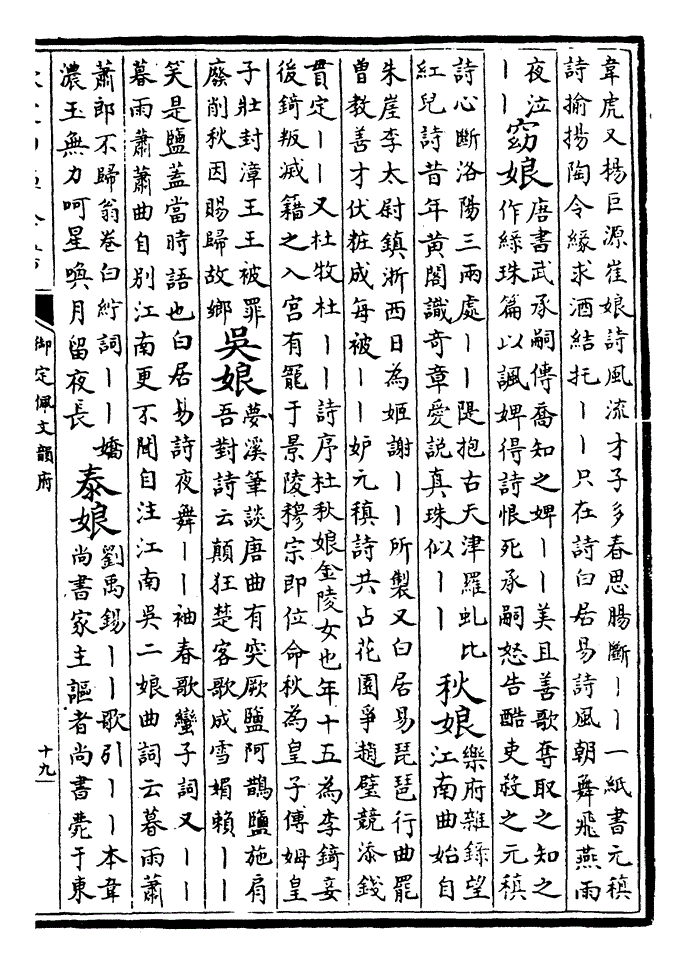 韋虎又楊巨源崔娘詩風流才子多春思腸斷丨丨一紙書元稹
詩揄揚陶令緣求酒結托丨丨只在詩白居易詩風朝舞飛燕雨
夜泣
丨丨
窈娘
唐書武承嗣傳喬知之婢丨丨美且善歌奪取之知之
作綠珠篇以諷婢得詩恨死承嗣怒告酷吏殺之元稹
詩心斷洛陽三兩處丨丨隄抱古天津羅虬比
紅兒詩昔年黃閣識奇章愛說真珠似丨丨
秋娘
樂府雜錄望
江南曲始自
朱崖李太尉鎮浙西日為姬謝丨丨所製又白居易琵琶行曲罷
曾教善才伏粧成每被丨丨妒元稹詩共占花園爭趙璧競添錢
貫定丨丨又杜牧杜丨丨詩序杜秋娘金陵女也年十五為李錡妾
後錡叛滅籍之入宮有寵于景陵穆宗即位命秋為皇子傅姆皇
子壯封漳王王被罪
廢削秋因賜歸故鄉
吳娘
夢溪筆談唐曲有突厥鹽阿鵲鹽施肩
吾對詩云顛狂楚客歌成雪媚賴丨丨
笑是鹽蓋當時語也白居易詩夜舞丨丨袖春歌蠻子詞又丨丨
暮雨蕭蕭曲自別江南更不聞自注江南吳二娘曲詞云暮雨蕭
蕭郎不歸翁卷白紵詞丨丨嬌
濃玉無力呵星喚月留夜長
泰娘
劉禹錫丨丨歌引丨丨本韋
尚書家主謳者尚書薨于東
御定佩文韻府
十九